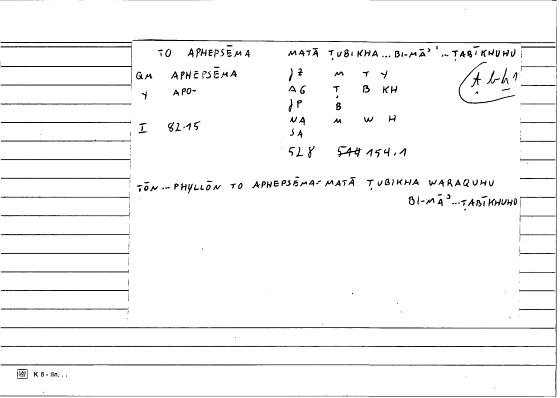 TO APHEPSĒMA MATĀ ṬUBIKHA ... BI-MĀʾ ... ṬABĪKHUHU
QM APHEPSĒMA JZ M T Y A b h 1
Y APO- AG Ṭ B KH
JP B
I 82.15 NA M W H
SA
5L8 154.1
TŌN...PHYLLŌN TO APHEPSĒMA = MATĀ ṬUBIKHA WARAQUHU
BI-MĀʾ...ṬABĪKHUHU
K 5 - lin. . .